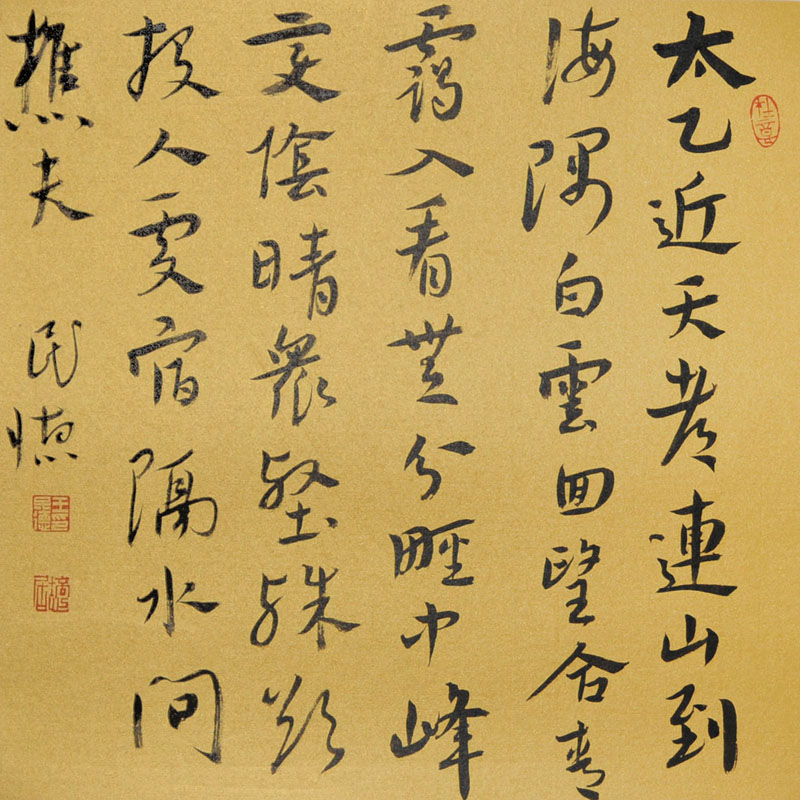 太乙近天都連山到
海隅白雲回望合青
靄入看無分野中峰
變陰晴衆壑殊欲
投人處宿隔水問
樵夫 民德